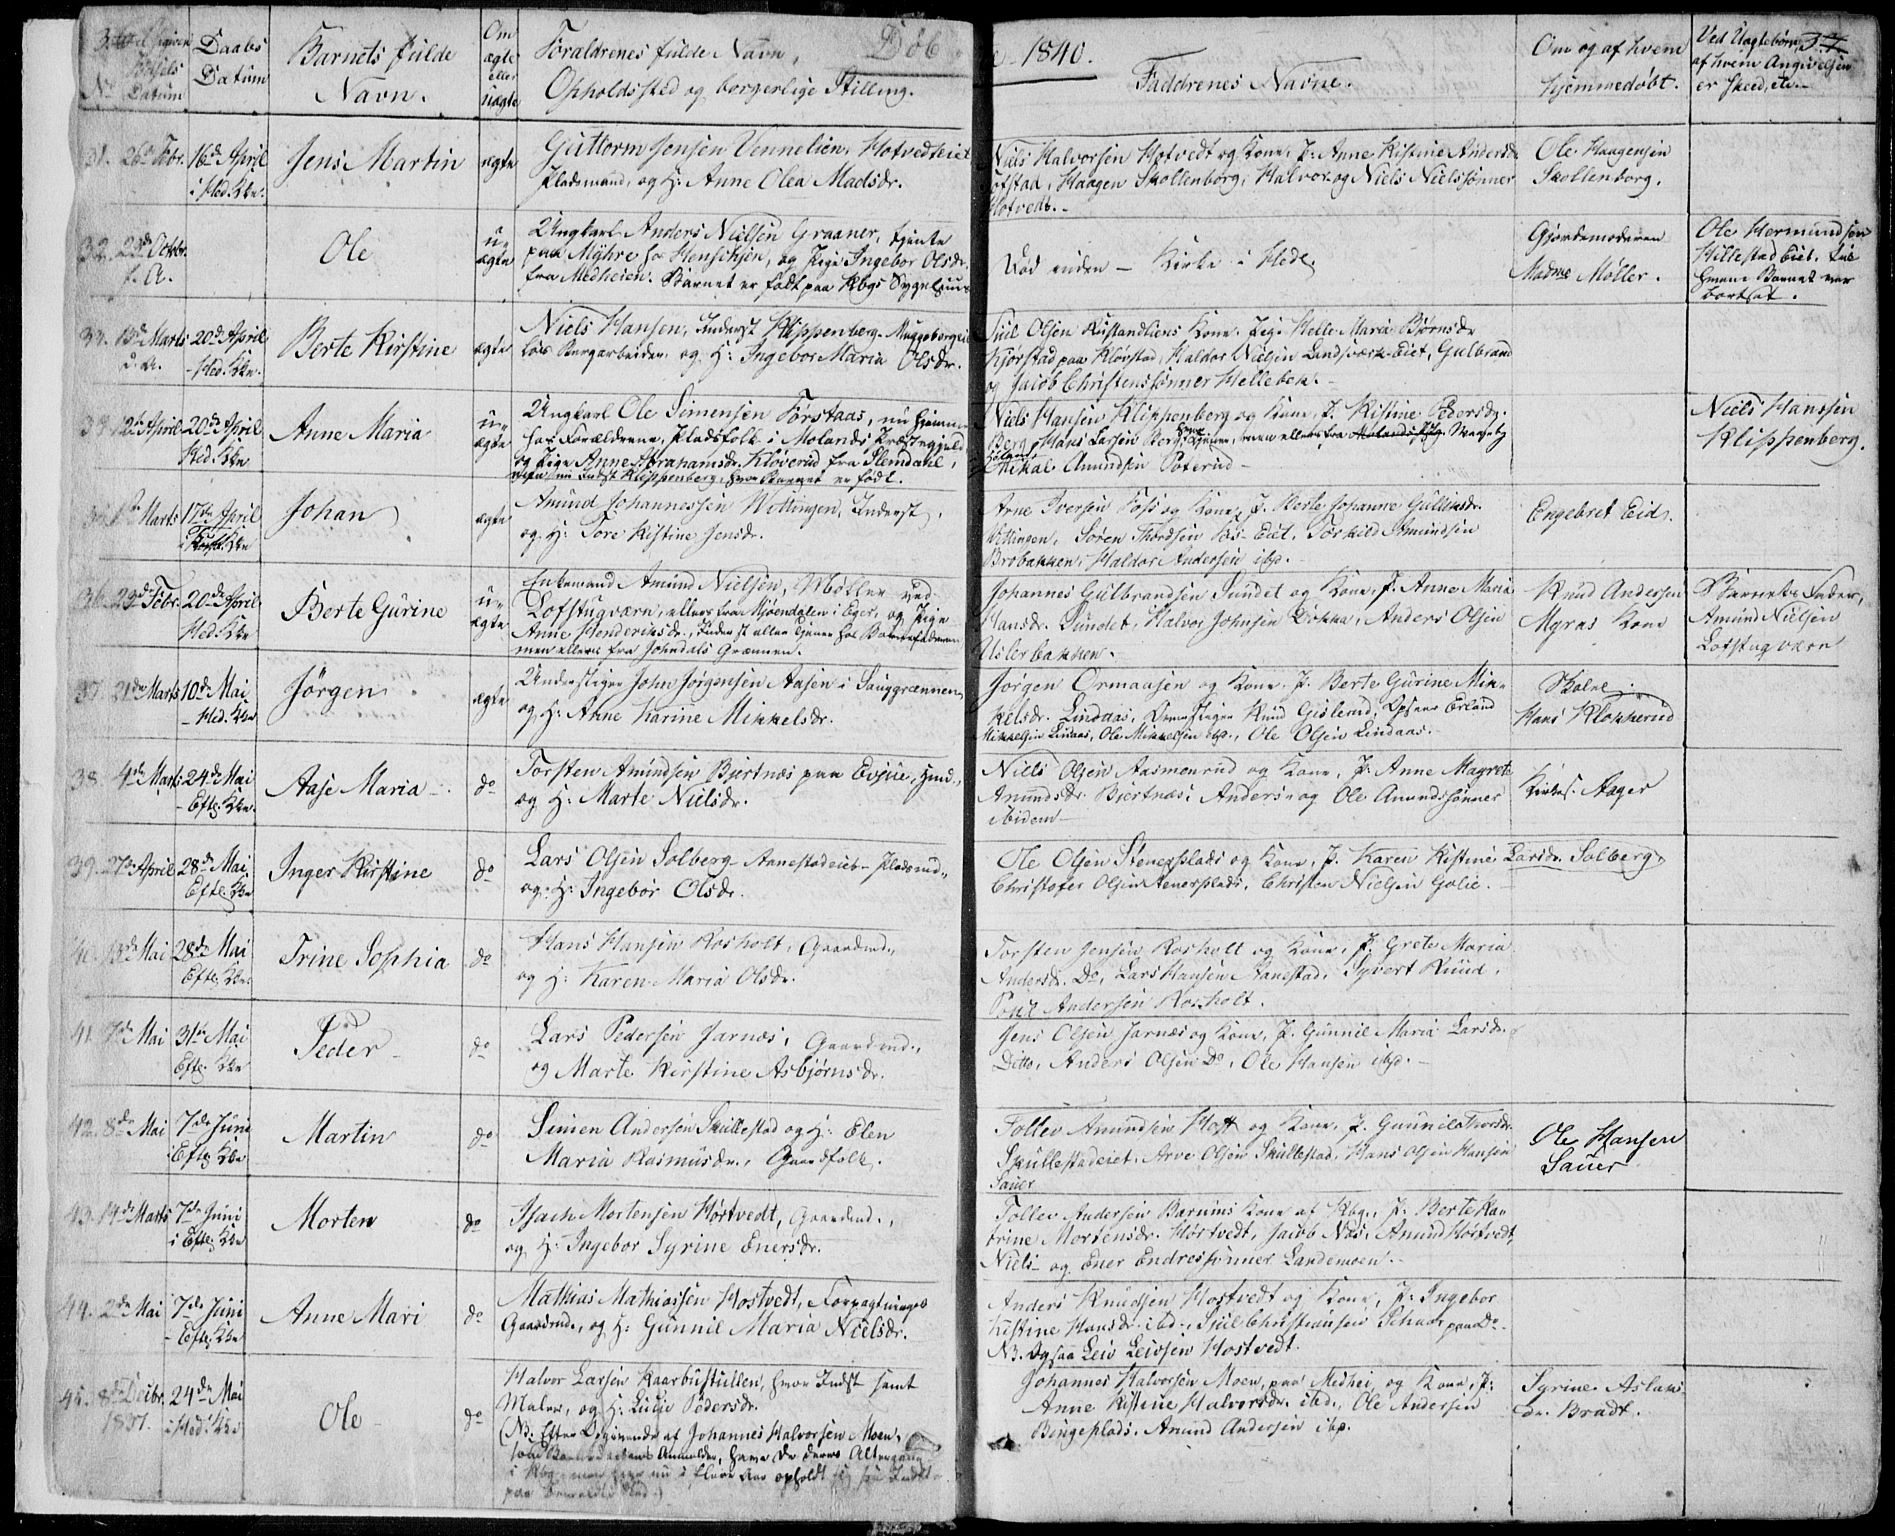 Daabs
Datum
Barnets fulde
Navn.
Om
ægte
eller
uægte
Forældrenes fulde Navn,
Opholdssted og borgerlige Stilling.
Døb
1840.
Faddrenes Navne.
Om og af hvem
hjemmedøbt.
Ved Uægtebørn,
af hvem Angivelsen
er skeed, etc.
37
31. 26de Febr. 16de April
i Hed. Kke.
Jens Martin
ægte
Guttorm Jensen Vennelien, Hotvedteiet
Pladsmand, og H: Anne Olea Madsdr.
Niels Halvorsen Hotvedt og Kone, P: Anne Kistine Andersdr.
Tofstad, Haagen Skollenborg, Halvor og Niels Nielssønner
Hotvedt.
Ole Haagensen
Skollenborg.
32. 23de Octbr.
f. A.
Ole
u-
ægte
Ungkarl Anders Nielsen Graaner, tjente
paa Myhre hos Henschjen, og Pige Ingebor Olsdr.
fra Medheien. Barnet er født paa Kbgs Sygehuus
Død inden - Kirke i Hede.
Gjordemoderen
Madme Møller.
Ole Hermundsen
Hillestadeiet, hos
hvem Barnet var
bortsat.
33. 13de Marts 20de April
d. A. - Hed. Kke.
Berte Kirstine
ægte
Niels Hansen, Inderst Klippenberg
løis Bergarbeider, og H: Ingebor Maria Olsdr.
Juel Olsen Kustandliens Kone, Pige Helle Maria Bjørnsdr.
Kjørstad paa Kløvstad, Haldor Nielsen Landsværk-Eiet, Gulbrand
og Jacob Christenssønner Hellebek.
34. 12te April 20de April
Hed. Kke
Anne Maria
u-
ægte
Ungkarl Ole Simensen Førstaas, nu hjemme
hos Forældrene, Pladsfolk i Molands Præstegjeld
og Pige Anne Abrahamsdr. Kløverud fra Slemdahl,
nu Indst Klippenberg, hvor Barnet er født.
Niels Hansen Klippenberg og Kone, P. Kistine Pedersdr.
Berg, Hans Larsen Berg
Mikal Amundsen Poterud
Niels Hansen
Klippenberg.
Marts 17de April
Johan
ægte
Amund Johannessen Wettingen, Inderst,
og H: Tore Kistine Jensdr.
Arne Iversen Foss og Kone, P. Berte Johanne Gulliksdr.
Vittingen, Søren Thordsen Fos-Eiet, Torkild Amundsen
Brobakken, Haldor Andersen ibd.
Engebret Eid.
36. 23de Febr. 20de April
Hed. Kke
Berte Gurine
u-
ægte
Enkemand Amund Nielsen, Møller ved
Lofstugværn, ellers fra Mjøendalen i Eger, og Pige
Anne Henderiksdr., Inderst eller tjener hos Barnefaderen
men ellers fra Johndals Grænnen.
Johannes Gulbrandsen Sundet og Kone, P. Anne Maria
Hansdr. Sundet, Halvor Johnsen Dokka, Anders Olsen
Uslerbakken.
Knud Andersen
Myras Kone
Barnets Fader,
Amund Nielsen
Lofstugværn
37. 21de Marts 10de Mai
- Hed. Kke
Jörgen
ægte
Understiger John Jørgensen Aasen i Sauggrænnen
og H: Anne Karine Mikkelsdr.
Jørgen Ormaasen og Kone, P. Berte Gurine Mik-
kelsdr. Lindaas, Understiger Knud Gislerud, Opseer Erland
Mikkelsen Lindaas, Ole Mikkelsen ibd., Ole Olsen Lindaas.
Skolel.
Hans Klokkerud
38. 4de Marts 24de Mai
- Eftl. Kke.
Aase Maria
do
Torsten Amundsen Bjertnæs paa Evjue, Huusmd.,
og H: Marte Nielsdr.
Niels Olsen Aasmenrud og Kone, P. Anne Magrete
Amundsdr. Bjertnæs, Anders- og Ole Amundssønner
ibidem
Kirkes. Aager
39. 27de April 28de Mai
Eftl. Kke
Inger Kirstine
do
Lars Olsen Solberg - Aanestadeiet - Pladsmd.,
og H: Ingebor Olsdr.
Ole Olsen Stenersplads og Kone, P. Karen Kistine Larsdr. Solberg,
Christofer Olsen Stenersplads, Christen Nielsen Golie.
40. 13de Mai 28de Mai
Eftl. Kke.
Trine Sophia
do
Hans Hansen Rosholt, Gaardmd.,
og H: Karen Maria Olsdr.
Torsten Jensen Rosholt og Kone, P. Grete Maria
Andersdr. Do, Lars Hansen Aanestad, Syvert Ruud,
Poul Andersen Rosholt.
41. 7de Mai 31te Mai
Eftl. Kke
Peder
do
Lars Pedersen Jarnæs, Gaardmd.,
og Marte Kirstine Asbjørnsdr.
Jens Olsen Jarnæs og Kone, P. Gunnil Maria Larsdr.
Ditto, Anders Olsen Do, Ole Hansen ibd.
42. 8de Mai 7de Juni
Eftl. Kke
Martin
do
Simen Andersen Skullestad og H: Elen
Maria Rasmusdr., Gaardfolk.
Follev Amundsen Hoff og Kone, P. Gunnil Thorsdr.
Skullestadeiet, Arve Olsen Skullestad, Hans Olsen Hansen
Sauer
Ole Hansen
Sauer
43. 14de Marts 7de Juni
i Eftl. Kke
Morten
do
Isach Mortensen Hørtvedt, Gaardmd.,
og H: Ingebor Syrine Enersdr.
Follev Andersen Barmens Kone af Kbg., P. Berte Ka-
trine Mortensdr. Hørtvedt, Jacob Næs, Amund Hørtvedt,
Niels- og Ener Endressønner Landemoen.
44. 2de Mai 7de Juni
- Eftl. Kke
Anne Mari
do
Mathias Mathiassen Hostvedt, Forpagtnings-
Gaardmd., og H: Gunnil Maria Nielsdr.
Anders Knudsen Hostvedt og Kone, P. Ingebor
Kistine Hansdr. ibd., Juel Christiansen Schaar paa Do
NB. Ogsaa Leiv Leivsen Hostvedt.
45. 8de Decbr. 24de Mai
1837. i Hed. Kke
Ole
do
Halvor Larsen Kaarbustullen, hvor Indst samt
Maler, og H: Lucie Pedersdr.
(NB. Efter Opgivende af Johannes Halvorsen Moen,
som Barnedaabens Anmelder, have de deres Altergang
i Kbg, men har nu i flere Aar opholdt sig som Indst
paa bemeldte Sted.)
Johannes Halvorsen Moen, paa Medhei, og Kone, P:
Anne Kistine Halvorsdr. ibd., Ole Andersen
Bingeplads, Amund Andersen ibd.
Syrine Aslaks-
dr. Bradt.